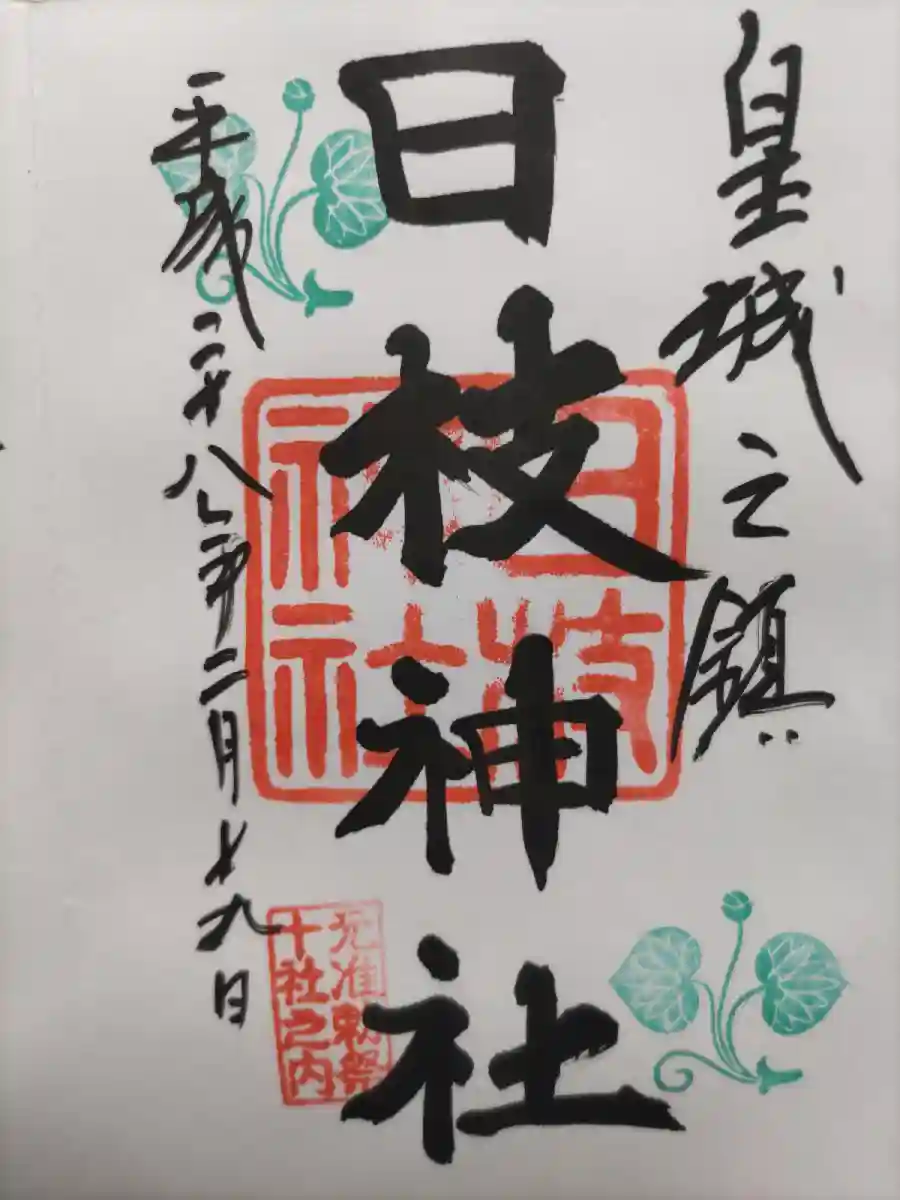 皇城之鎮
日枝神社
日枝
神社
元准勅祭
十社之内
平成二十八年二月十九日